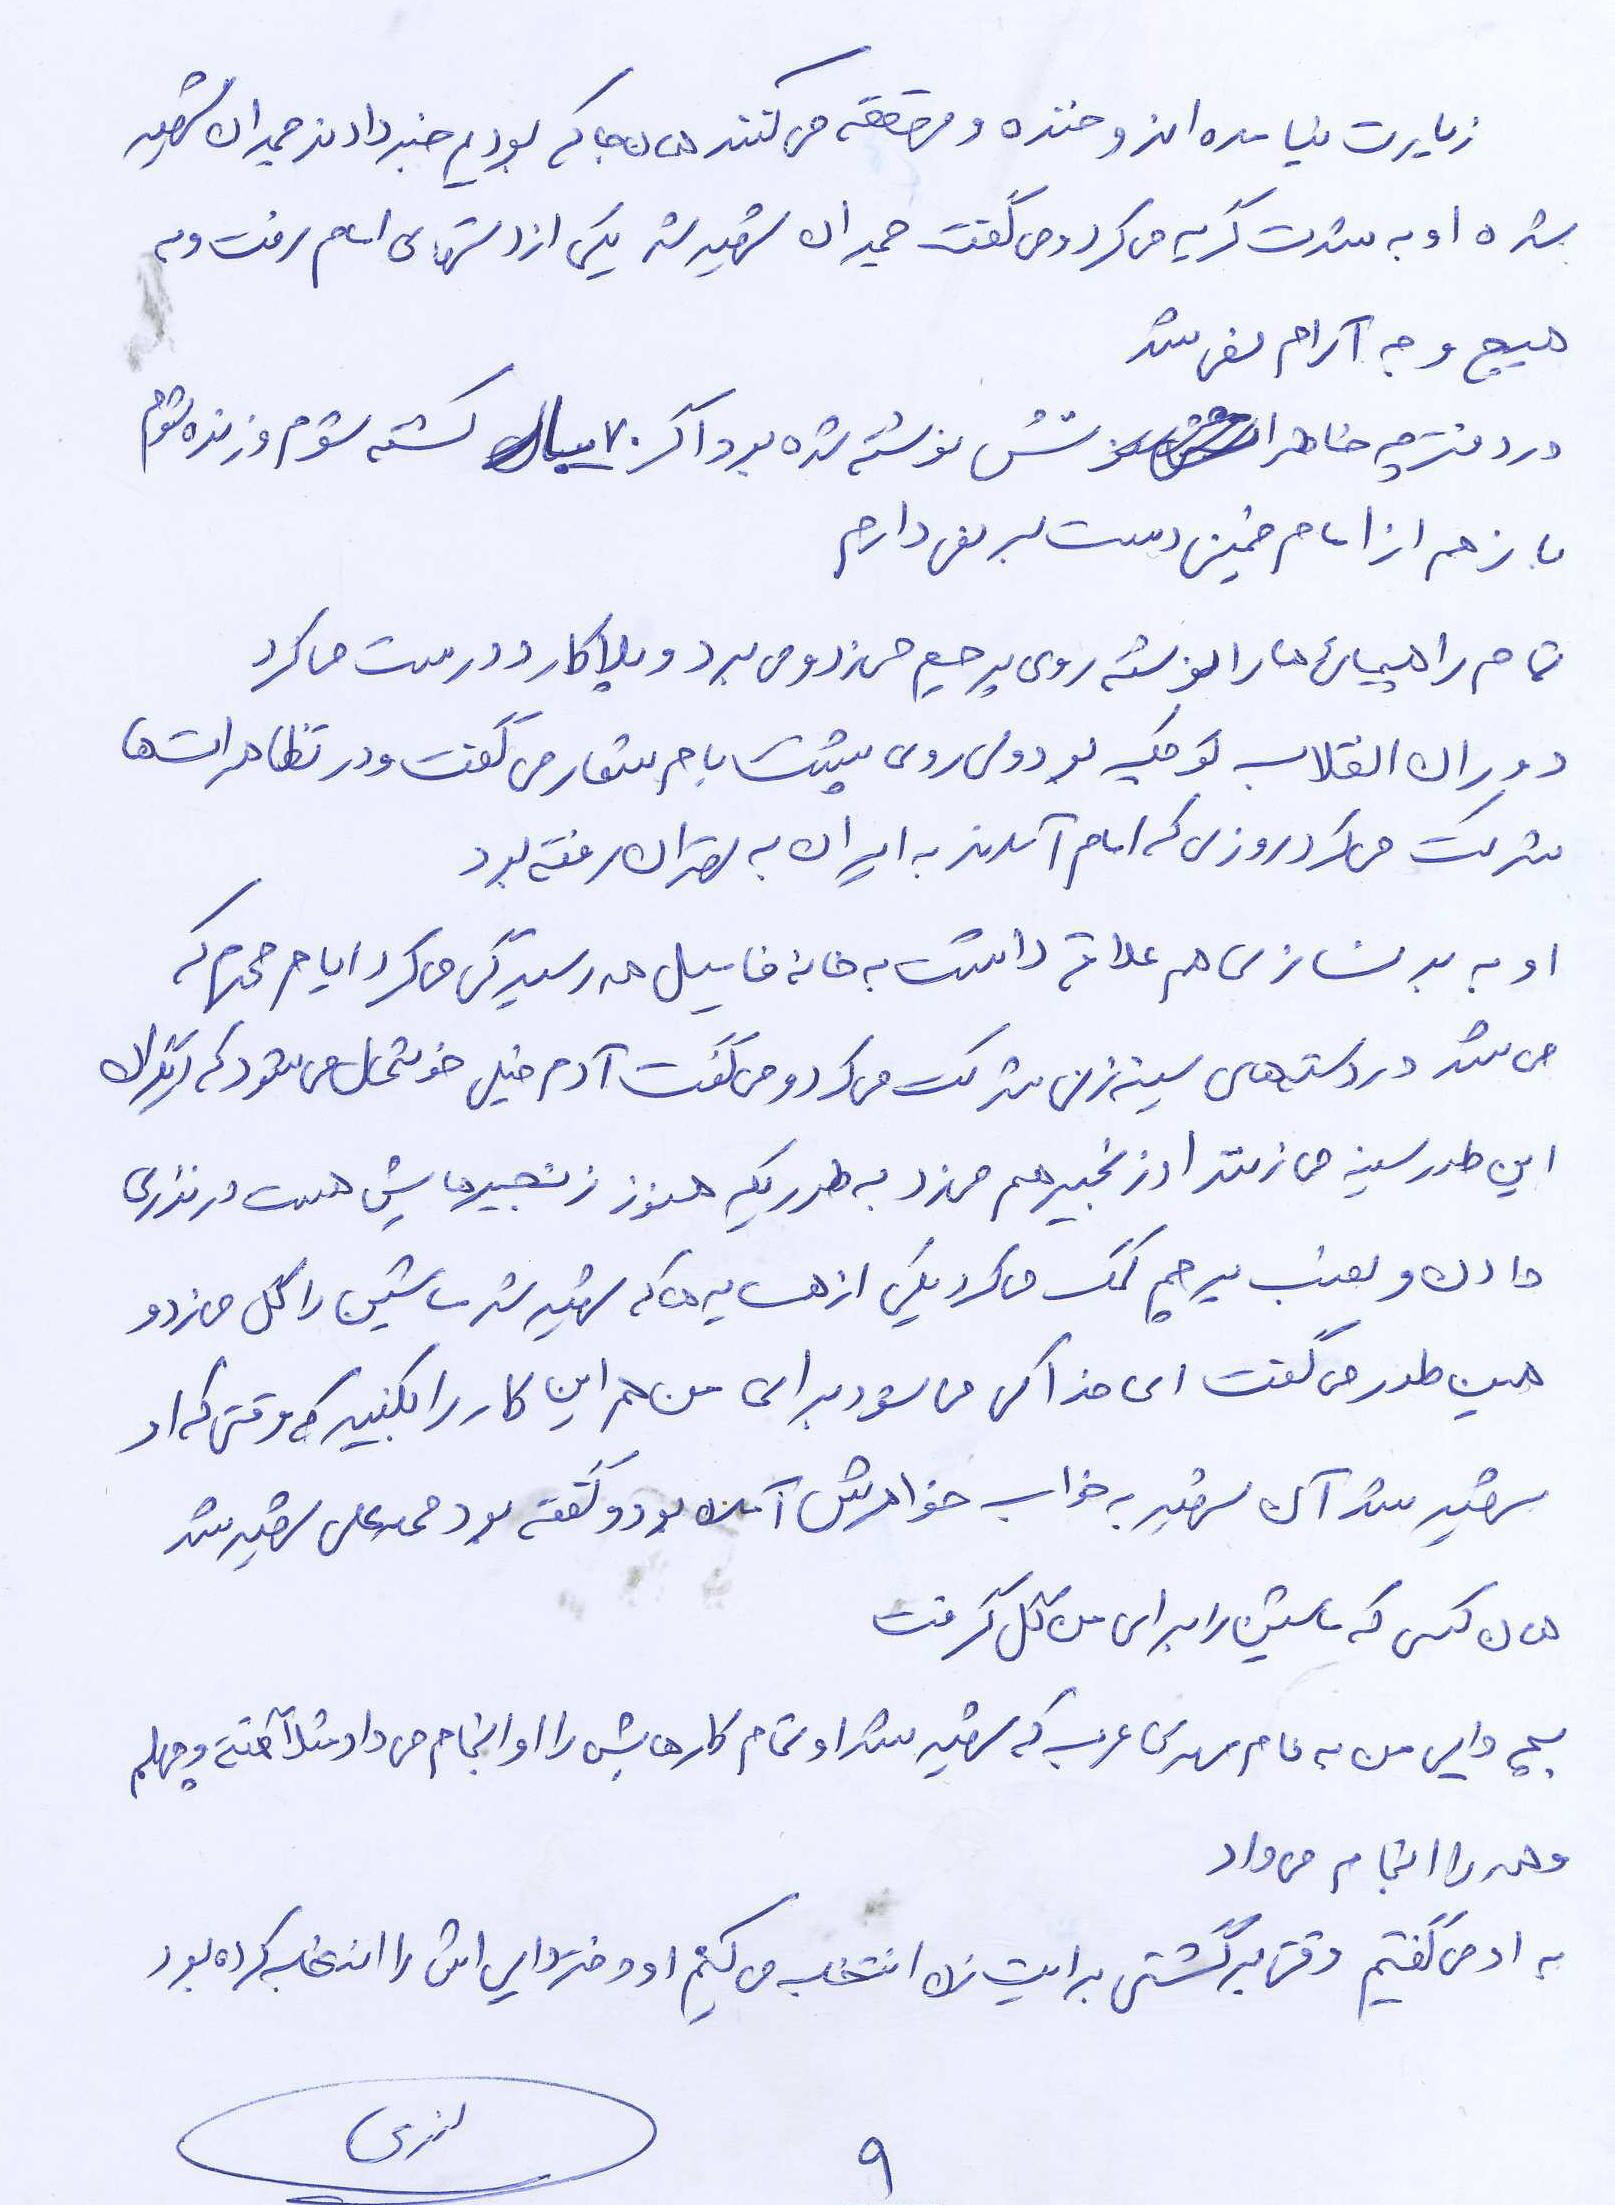 زیارت نیامده اند و خنده و قهقهه می کنند همان جا که بودیم خبر دادند چمران شهید
شده او به شدت گریه می کرد و می گفت چمران شهید شد یکی از دستهای امام رفت و به
هیچ وجه آرام نمی شد
در دفترچه خاطراتش نوشته شده بود اگر ۷۰ بار کشته شوم و زنده شوم
باز هم از امام خمینی دست بر نمی دارم
تمام راهپیمائی ها را نوشته روی پرچم می زد و می برد و پلاکارد درست می کرد
دوران انقلاب کوچک بود ولی روی پشت بام شعار می گفت و در تظاهرات ها
شرکت می کرد روزی که امام آمدند به ایران به تهران رفته بود
او به بدنسازی هم علاقه داشت به خانه فامیل هم رسیدگی می کرد ایام محرم که
می شد در دسته های سینه زنی شرکت می کرد و می گفت آدم خیلی خوشحال می شود که دیگران
این طور سینه می زنند او زنجیر هم می زد به طوریکه هنوز زنجیرهایش هست در نذری
دادن و نصب پرچم کمک می کرد یکی از همسایه ها که شهید شد ماشین را گل می زد و
همین طور می گفت ای خدا کی می شود برای من هم این کار را بکنید که وقتی که او
شهید شد آن شهید به خواب خواهرش آمده بود و گفته بود محمدعلی شهید شد
همان کسی که ماشین را برای من گل گرفت
بچه دایی من به نام مهدی عرب که شهید شد او تمام کارهایش را او انجام می داد مثلاً هفته و چهلم
و همه را انجام می داد
به او می گفتیم وقتی برگشتی برایت زن انتخاب می کنیم او دختر دایی اش را انتخاب کرده بود
۹